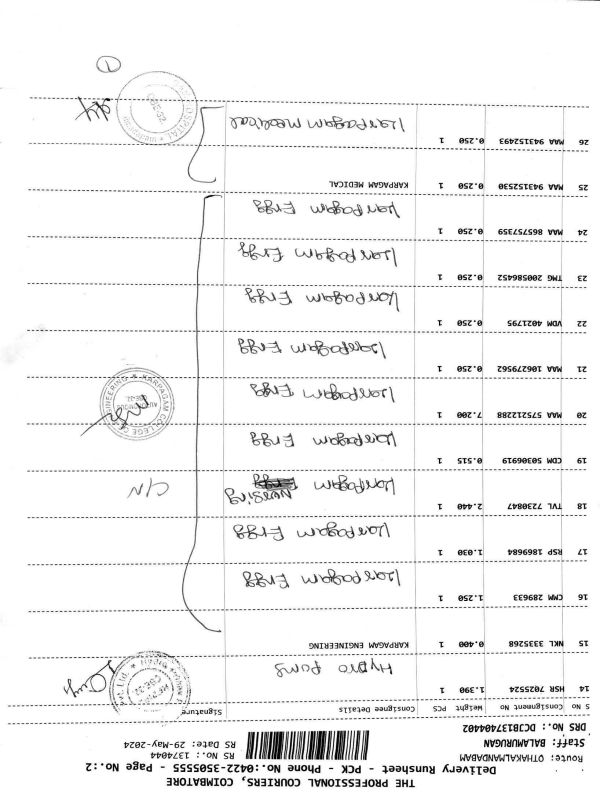 THE PROFESSIONAL COURIERS, COIMBATORE
Delivery Runsheet - PCK - Phone No.:0422-3505555 - Page No.:2
Route: OTHAKALMANDABAM
RS No.: 1374044
Staff: BALAMURUGAN
RS Date: 29-May-2024
DRS No.: DCJB137404402
S No Consignment No Weight PCS Consignee Details Signature
14 HSR 7025524 1.390 1 Hydro pams
15 NKL 3335268 0.400 1 KARPAGAM ENGINEERING
16 CWM 289633 1.250 1 Karpagam Engg
17 RSP 1869684 1.030 1 Karpagam Engg
18 TVL 7230847 2.440 1 Karpagam Nursing C/N
19 CDM 50306919 0.515 1 Karpagam Engg
20 MAA 575212288 7.200 1 Karpagam Engg
KARPAGAM COLLEGE OF ENGINEERING
AUTONOMOUS
21 MAA 106279562 0.250 1 Karpagam Engg
22 VDM 4021795 0.250 1 Karpagam Engg
23 TMG 200586452 0.250 1 Karpagam Engg
24 MAA 865757359 0.250 1 Karpagam Engg
25 MAA 943152530 0.250 1 KARPAGAM MEDICAL
26 MAA 943152493 0.250 1 Karpagam medical
1